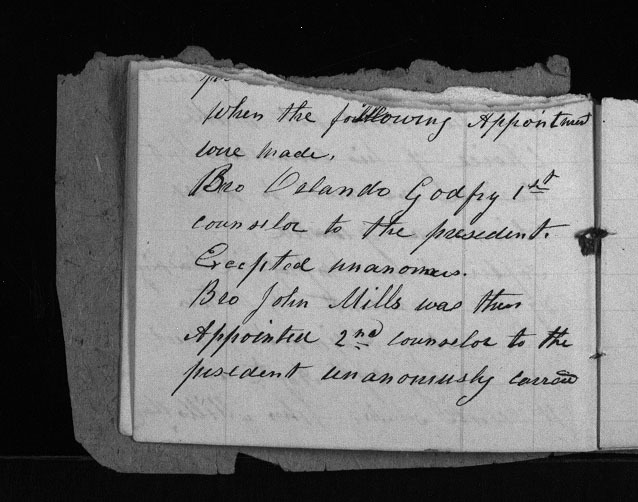 When the following Appointment
were made.
Bro Orlando Godfry 1st
counselor to the president.
Excepted unanomus.
Bro John Mills was then
Appointed 2nd counselor to the
president unanomusly carried